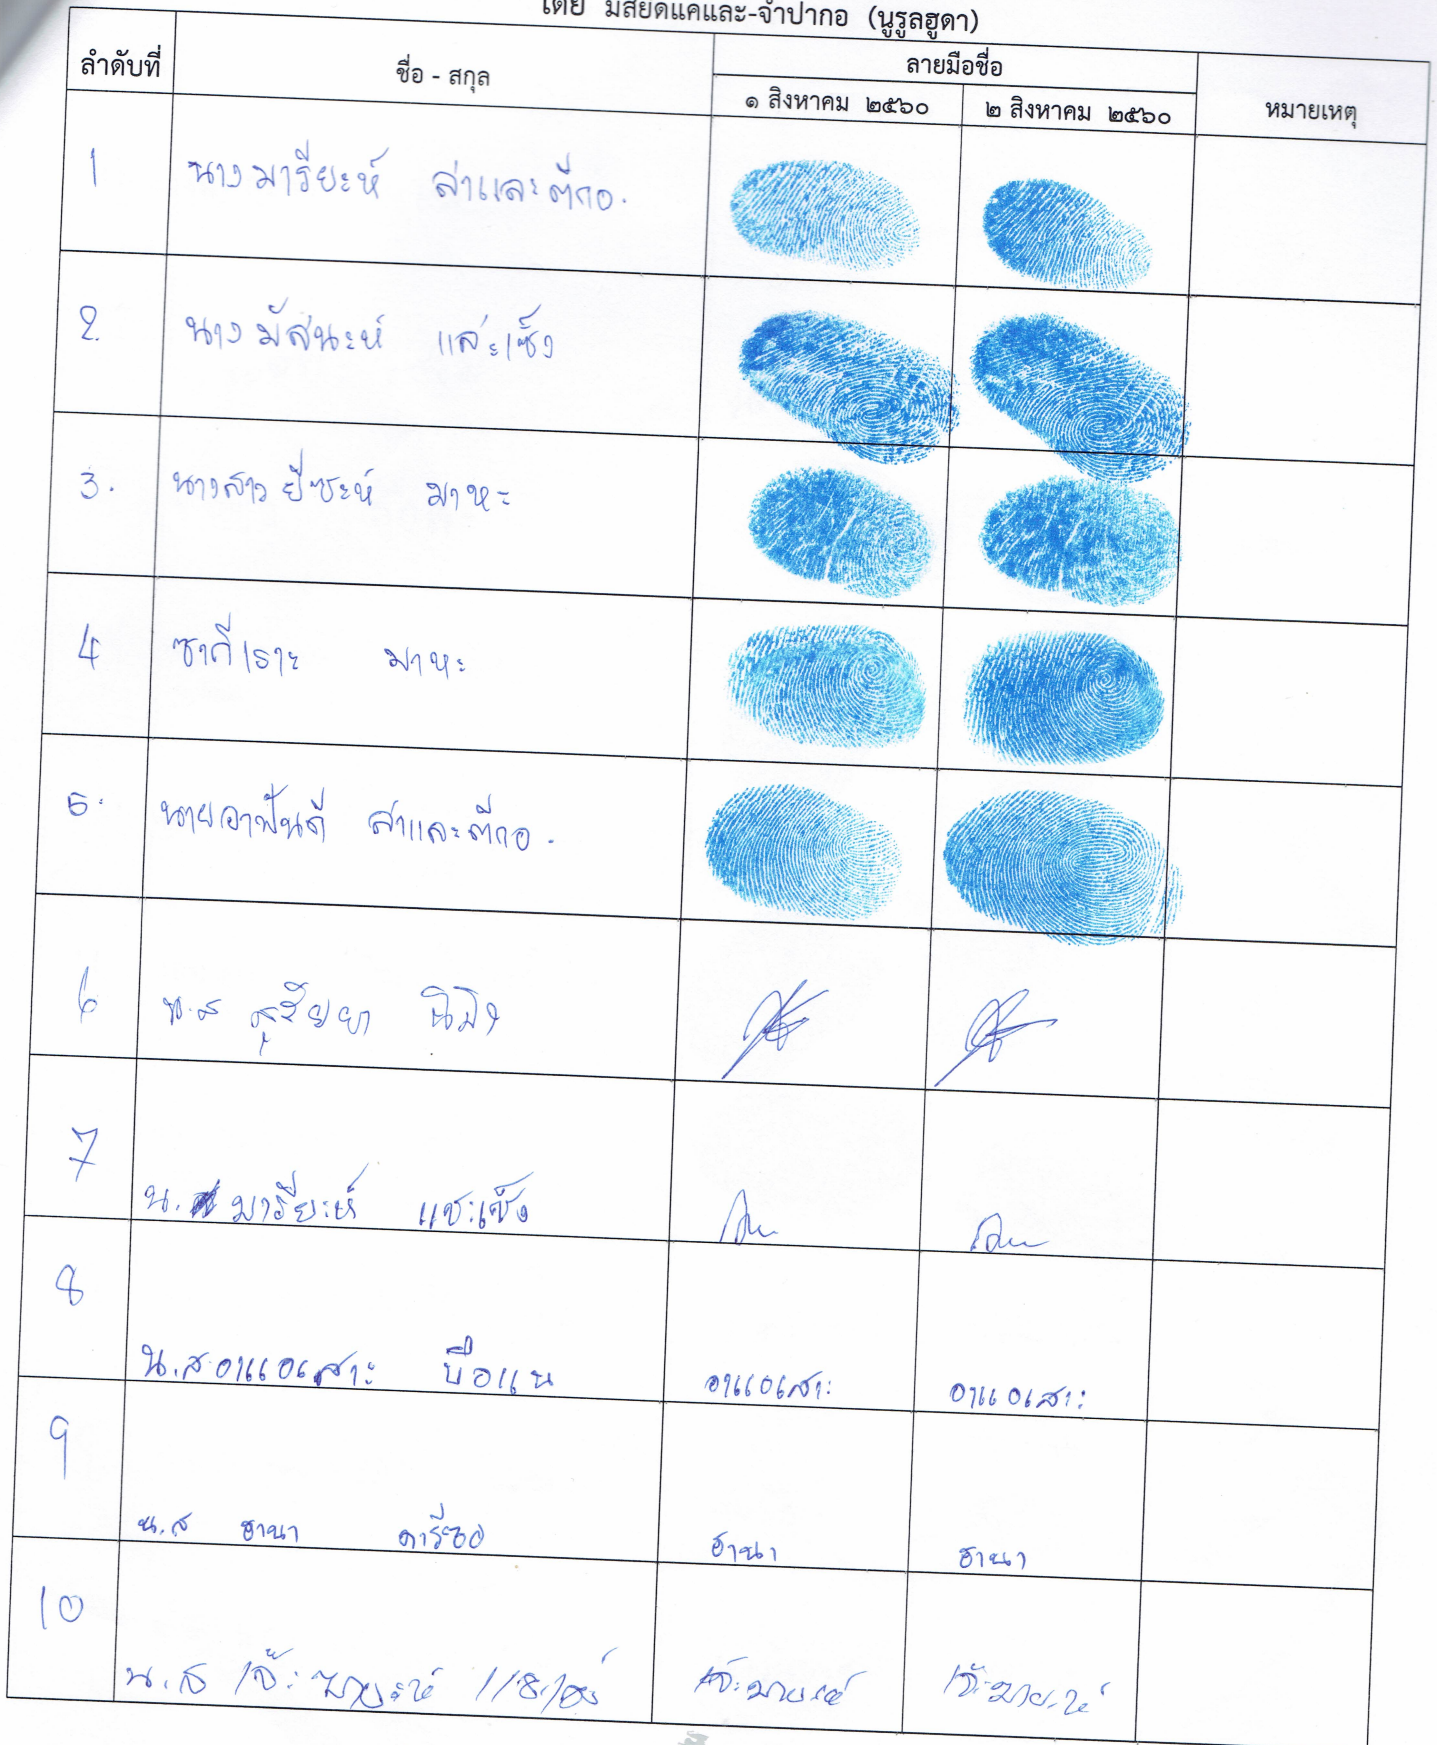 โดย มัสยิดแคและ-จำปากอ (นูรูลฮูดา)
ลำดับที่ ชื่อ - สกุล ลายมือชื่อ หมายเหตุ
๑ สิงหาคม ๒๕๖๐ ๒ สิงหาคม ๒๕๖๐
1 นางมารียะห์ ล่าและตีกอ.
2. นางมัสนะห์ แล่ะเซ็ง
3. นางสาวยีซะห์ มาหะ
4 ซากีเราะ มาหะ
5. นายอาฟันดี ล่าและตีกอ.
6 น.ส สุรัยยา นิมิง
7 น. มารียะห์ แซะเซ็ง
8 น.ส อาแอเสาะ บือแน อาแอเสาะ อาแอเสาะ
9 น.ส ฮานา ดารีซอ ฮานา ฮานา
10 น.ส เจ๊ะ